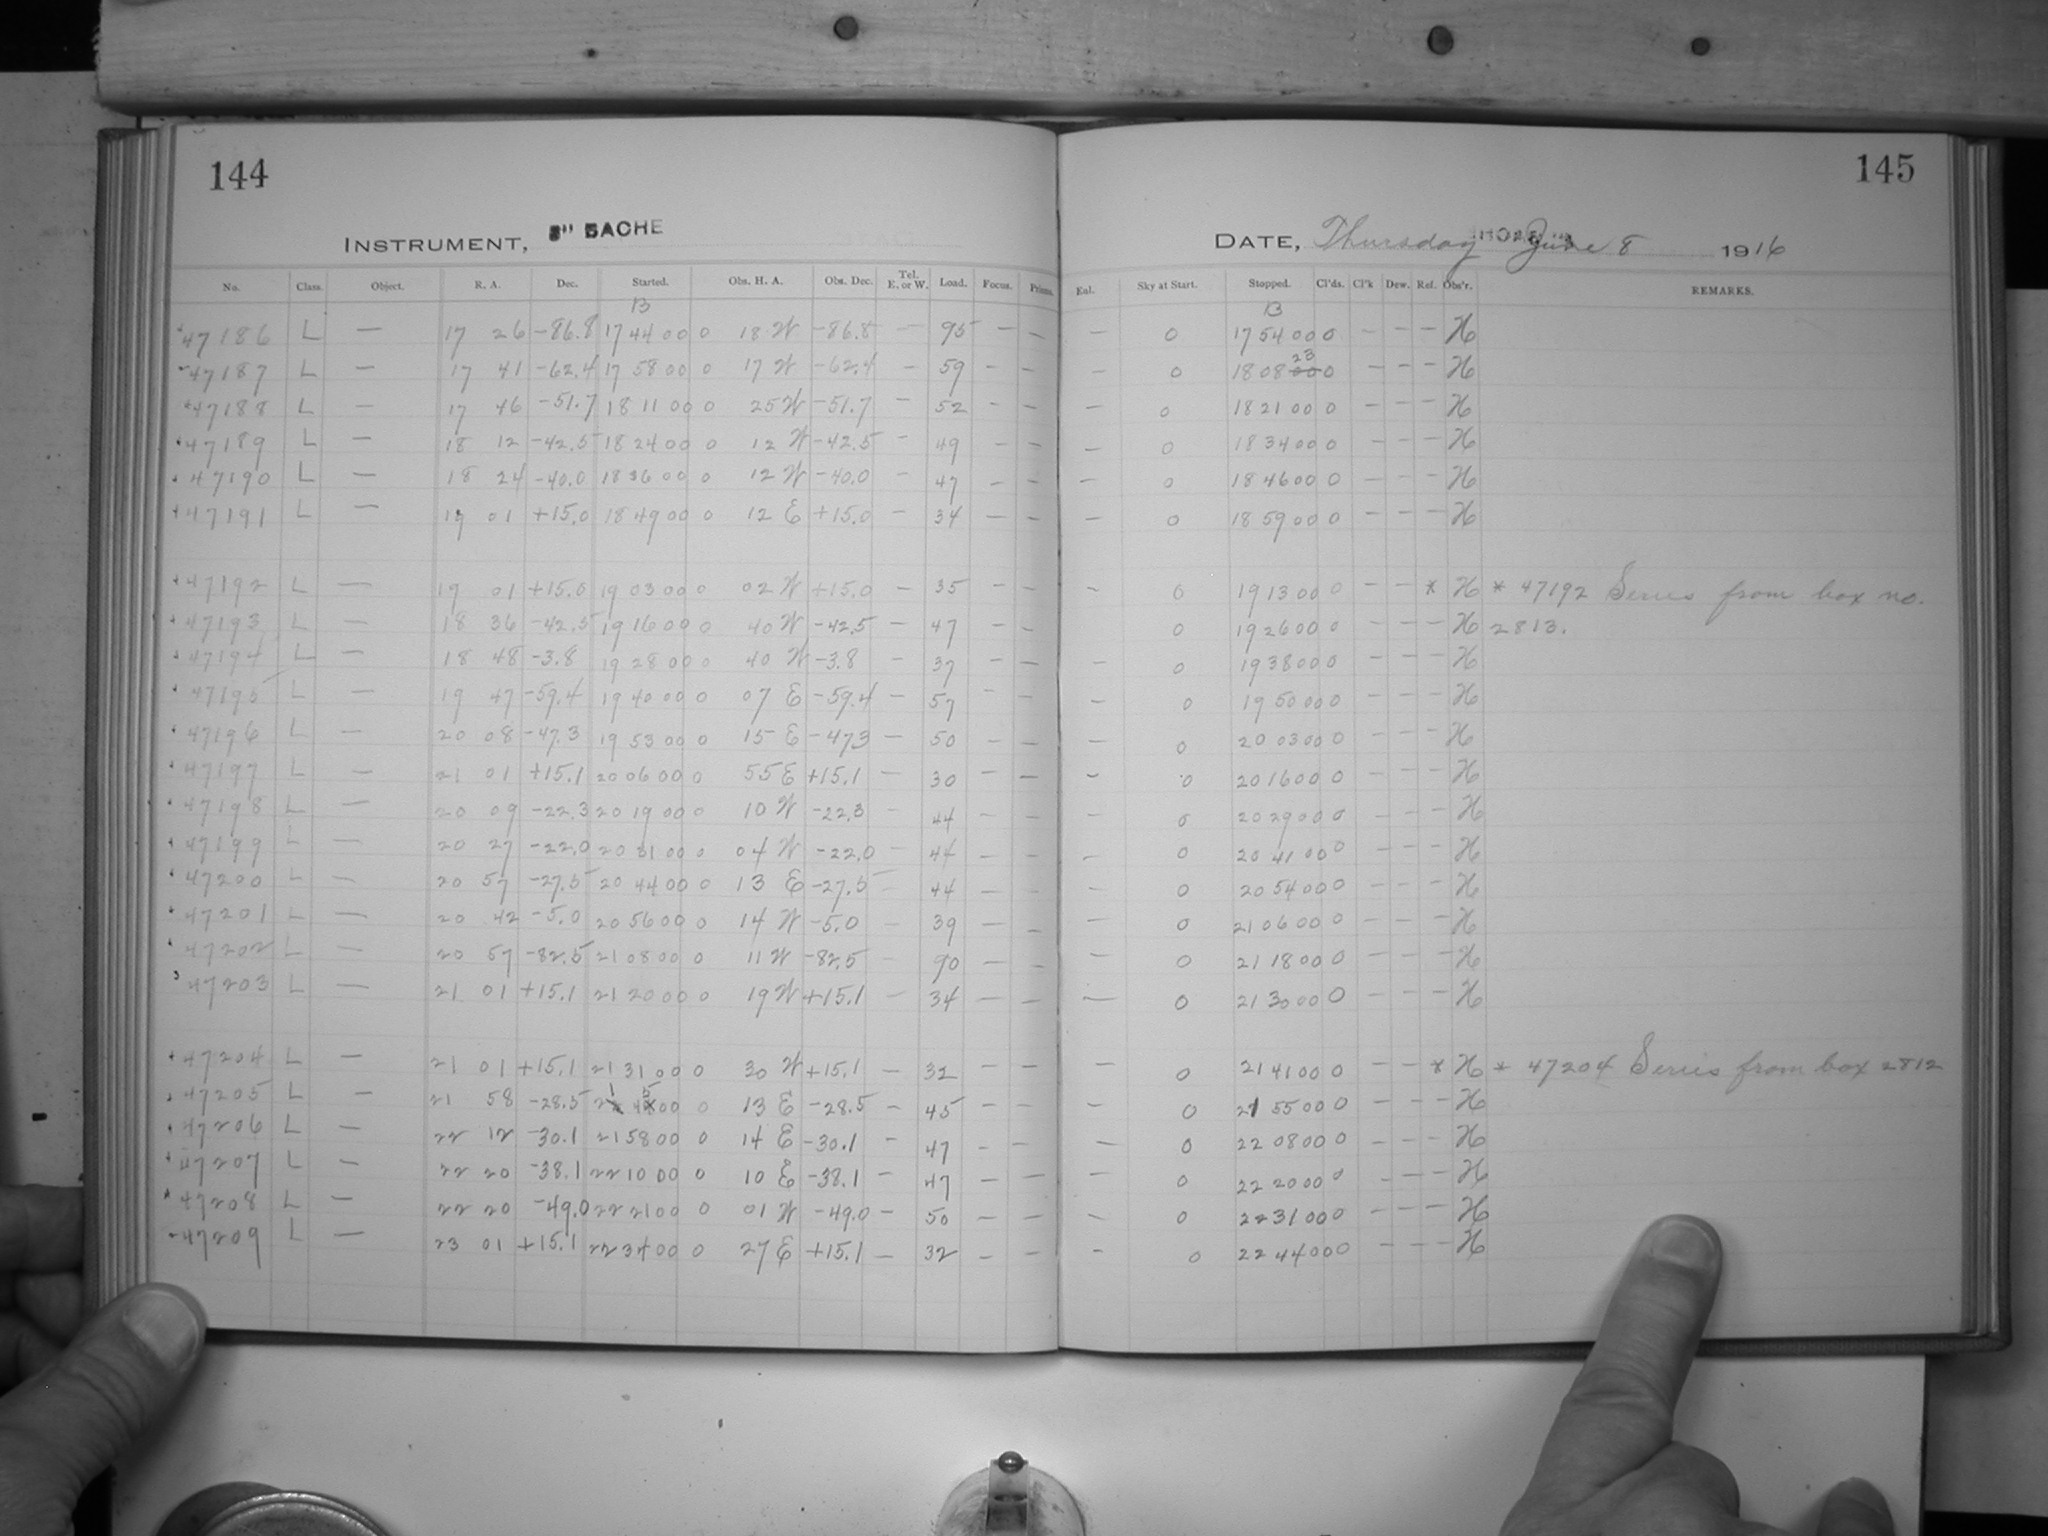 144
INSTRUMENT, 8" BACHE
No. Class. Object. R. A. Dec. Started. Obs. H. A. Obs. Dec. Tel. E. or W. Load. Focus. Prisms.
13
47186 L — 17 26 -86.8 17 44 00 0 18 W -86.8 — 95 — —
47187 L — 17 41 -62.4 17 58 00 0 17 W -62.4 — 59 — —
47188 L — 17 46 -51.7 18 11 00 0 25 W -51.7 — 52 — —
47189 L — 18 12 -42.5 18 24 00 0 12 W -42.5 — 49 — —
47190 L — 18 24 -40.0 18 36 00 0 12 W -40.0 — 47 — —
47191 L — 19 01 +15.0 18 49 00 0 12 E +15.0 — 34 — —
47192 L — 19 01 +15.0 19 03 00 0 02 W +15.0 — 35 — —
47193 L — 18 36 -42.5 19 16 00 0 40 W -42.5 — 47 — —
47194 L — 18 48 -3.8 19 28 00 0 40 W -3.8 — 37 — —
47195 L — 19 47 -59.4 19 40 00 0 07 E -59.4 — 57 — —
47196 L — 20 08 -47.3 19 53 00 0 15 E -473 — 50 — —
47197 L — 21 01 +15.1 20 06 00 0 55 E +15.1 — 30 — —
47198 L — 20 09 -22.3 20 19 00 0 10 W -22.3 — 44 — —
47199 L — 20 27 -22.0 20 31 00 0 04 W -22.0 — 44 — —
47200 L — 20 57 -27.5 20 44 00 0 13 E -27.5 — 44 — —
47201 L — 20 42 -5.0 20 56 00 0 14 W -5.0 — 39 — —
47202 L — 20 57 -82.5 21 08 00 0 11 W -82.5 — 90 — —
47203 L — 21 01 +15.1 21 20 00 0 19 W +15.1 — 34 — —
47204 L — 21 01 +15.1 21 31 00 0 30 W +15.1 — 32 — —
47205 L — 21 58 -28.5 21 45 00 0 13 E -28.5 — 45 — —
47206 L — 22 12 -30.1 21 58 00 0 14 E -30.1 — 47 — —
47207 L — 22 20 -38.1 22 10 00 0 10 E -38.1 — 47 — —
47208 L — 22 20 -49.0 22 21 00 0 01 W -49.0 — 50 — —
47209 L — 23 01 +15.1 22 34 00 0 27 E +15.1 — 32 — —
145
DATE, Thursday June 8 1916
Eul. Sky at Start. Stopped. Cl'ds. Cl'k Dew. Ref. Obs'r. REMARKS.
13
— 0 17 54 00 0 — — — H
— 0 18 08 23 0 — — — H
— 0 18 21 00 0 — — — H
— 0 18 34 00 0 — — — H
— 0 18 46 00 0 — — — H
— 0 18 59 00 0 — — — H
— 0 19 13 00 0 — — * H * 47192 Series from box no.
0 19 26 00 0 — — — H 2813.
— 0 19 38 00 0 — — — H
— 0 19 50 00 0 — — — H
— 0 20 03 00 0 — — — H
— 0 20 16 00 0 — — — H
— 0 20 29 00 0 — — — H
— 0 20 41 00 0 — — — H
— 0 20 54 00 0 — — — H
— 0 21 06 00 0 — — — H
— 0 21 18 00 0 — — — H
— 0 21 30 00 0 — — — H
— 0 21 41 00 0 — — * H * 47204 Series from box 2812
— 0 21 55 00 0 — — — H
— 0 22 08 00 0 — — — H
— 0 22 20 00 0 — — — H
— 0 22 31 00 0 — — — H
— 0 22 44 00 0 — — — H